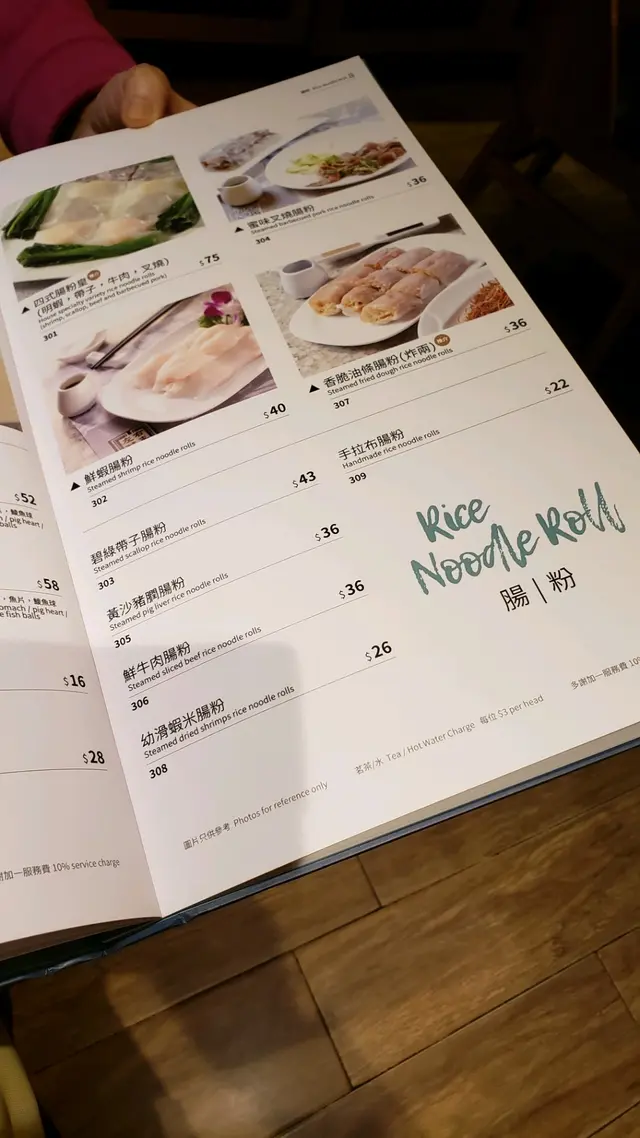 $52
，魚片，鯪魚球
/ pig heart /
balls
$58
，魚片，鯪魚球
omach / pig heart /
e fish balls
$16
$28
謝加一服務費 10% service charge
四式腸粉皇
$75
(明蝦，帶子，牛肉，叉燒)
House specialty variety rice noodle rolls
(shrimp, scallop, beef and barbecued pork)
301
蜜味叉燒腸粉
$36
Steamed barbecued pork rice noodle rolls
304
鮮蝦腸粉
$40
Steamed shrimp rice noodle rolls
302
香脆油條腸粉(炸兩)
$36
Steamed fried dough rice noodle rolls
307
碧綠帶子腸粉
$43
Steamed scallop rice noodle rolls
303
手拉布腸粉
$22
Handmade rice noodle rolls
309
黃沙豬潤腸粉
$36
Steamed pig liver rice noodle rolls
305
鮮牛肉腸粉
$36
Steamed sliced beef rice noodle rolls
306
幼滑蝦米腸粉
$26
Steamed dried shrimps rice noodle rolls
308
Rice
Noodle Roll
腸|粉
圖片只供參考 Photos for reference only
茗茶/水 Tea / Hot Water Charge 每位 $3 per head
多謝加一服務費 10%